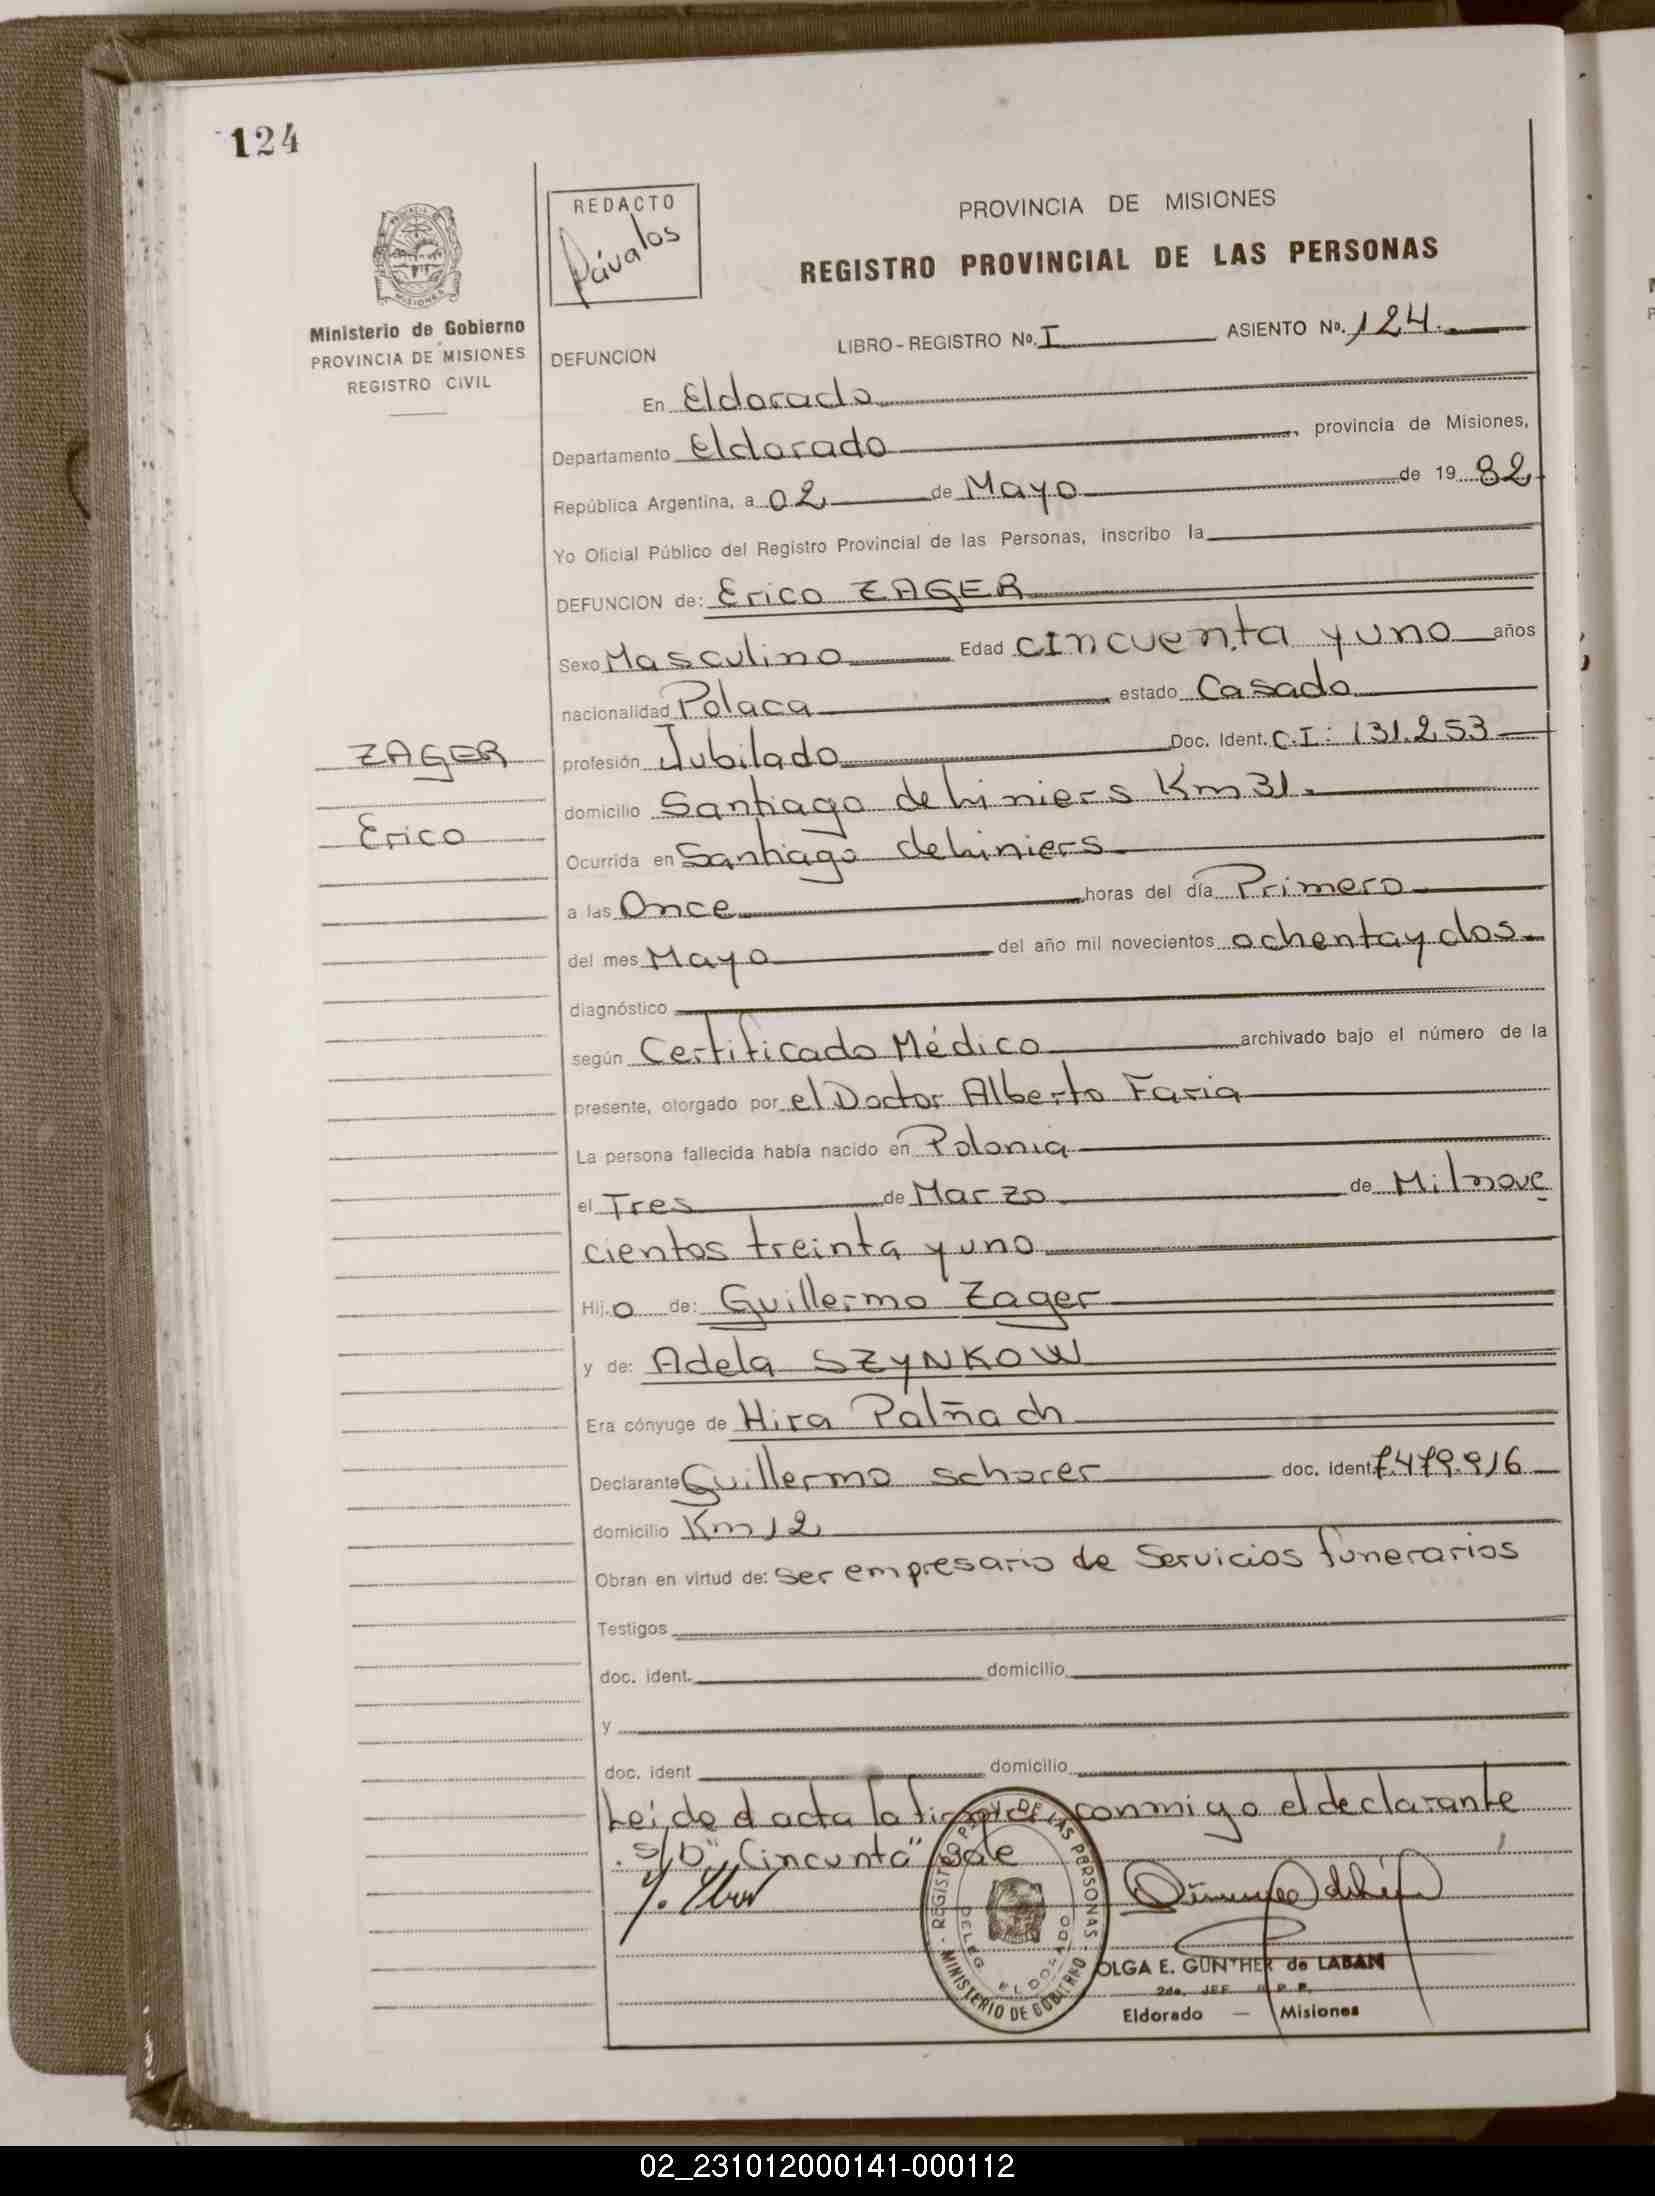 124
REDACTO
Dávalos
PROVINCIA DE MISIONES
REGISTRO PROVINCIAL DE LAS PERSONAS
Ministerio de Gobierno
PROVINCIA DE MISIONES
REGISTRO CIVIL
DEFUNCION
LIBRO-REGISTRO No. I ASIENTO No. 124.
En Eldorado
Departamento Eldorado, provincia de Misiones,
República Argentina, a 02 de Mayo de 1982
Yo Oficial Público del Registro Provincial de las Personas, inscribo la
DEFUNCION de: Erico ZAGER
Sexo Masculino Edad cincuenta y uno años
nacionalidad Polaca estado Casado
ZAGER
Erico
profesión Jubilado Doc. Ident. C.I: 131.253
domicilio Santiago de Liniers Km 31.
Ocurrida en Santiago de Liniers
a las Once horas del día Primero
del mes Mayo del año mil novecientos ochenta y dos.
diagnóstico
según Certificado Médico archivado bajo el número de la
presente, otorgado por el Doctor Alberto Faria
La persona fallecida había nacido en Polonia
el Tres de Marzo de Mil nove
cientos treinta y uno
Hijo de: Guillermo Zager
y de: Adela SZYNKOW
Era cónyuge de Hira Palñach
Declarante Guillermo Schorer doc. ident. 7.479.916
domicilio Km 12
Obran en virtud de: ser empresario de Servicios funerarios
Testigos
doc. ident. domicilio
y
doc. ident domicilio
Leído el acta la firma conmigo el declarante
. S/b "Cincunta" Vale
REGISTRO PROV. DE LAS PERSONAS
MINISTERIO DE GOBIERNO
DELEG. ELDORADO
OLGA E. GUNTHER de LABAN
2da. JEF. R. P. P.
Eldorado — Misiones
02_231012000141-000112